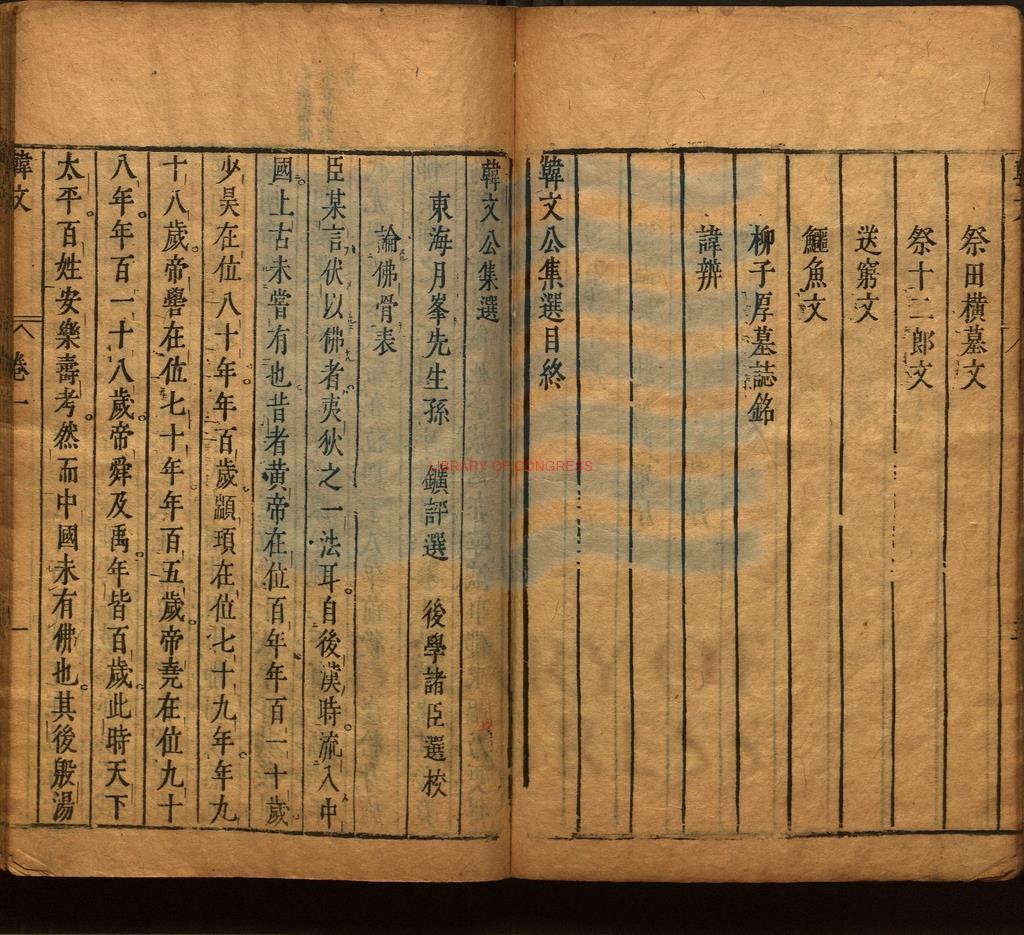 祭田橫墓文
祭十二郎文
送窮文
鱷魚文
柳子厚墓誌銘
諱辨
韓文公集選目終
韓文公集選
東海月峯先生孫 鑛評選 後學諸臣選校
論佛骨表
臣某言伏以佛者夷狄之一法耳。自後漢時。流入中
國。上古未嘗有也昔者黃帝在位百年年百一十歲
少昊在位八十年。年百歲。顓頊在位七十九年。年九
十八歲。帝嚳在位七十年年百五歲。帝堯在位九十
八年。年百一十八歲。帝舜及禹。年皆百歲。此時天下
太平。百姓安樂壽考。然而中國未有佛也。其後殷湯
韓文 卷一 一
LIBRARY OF CONGRESS